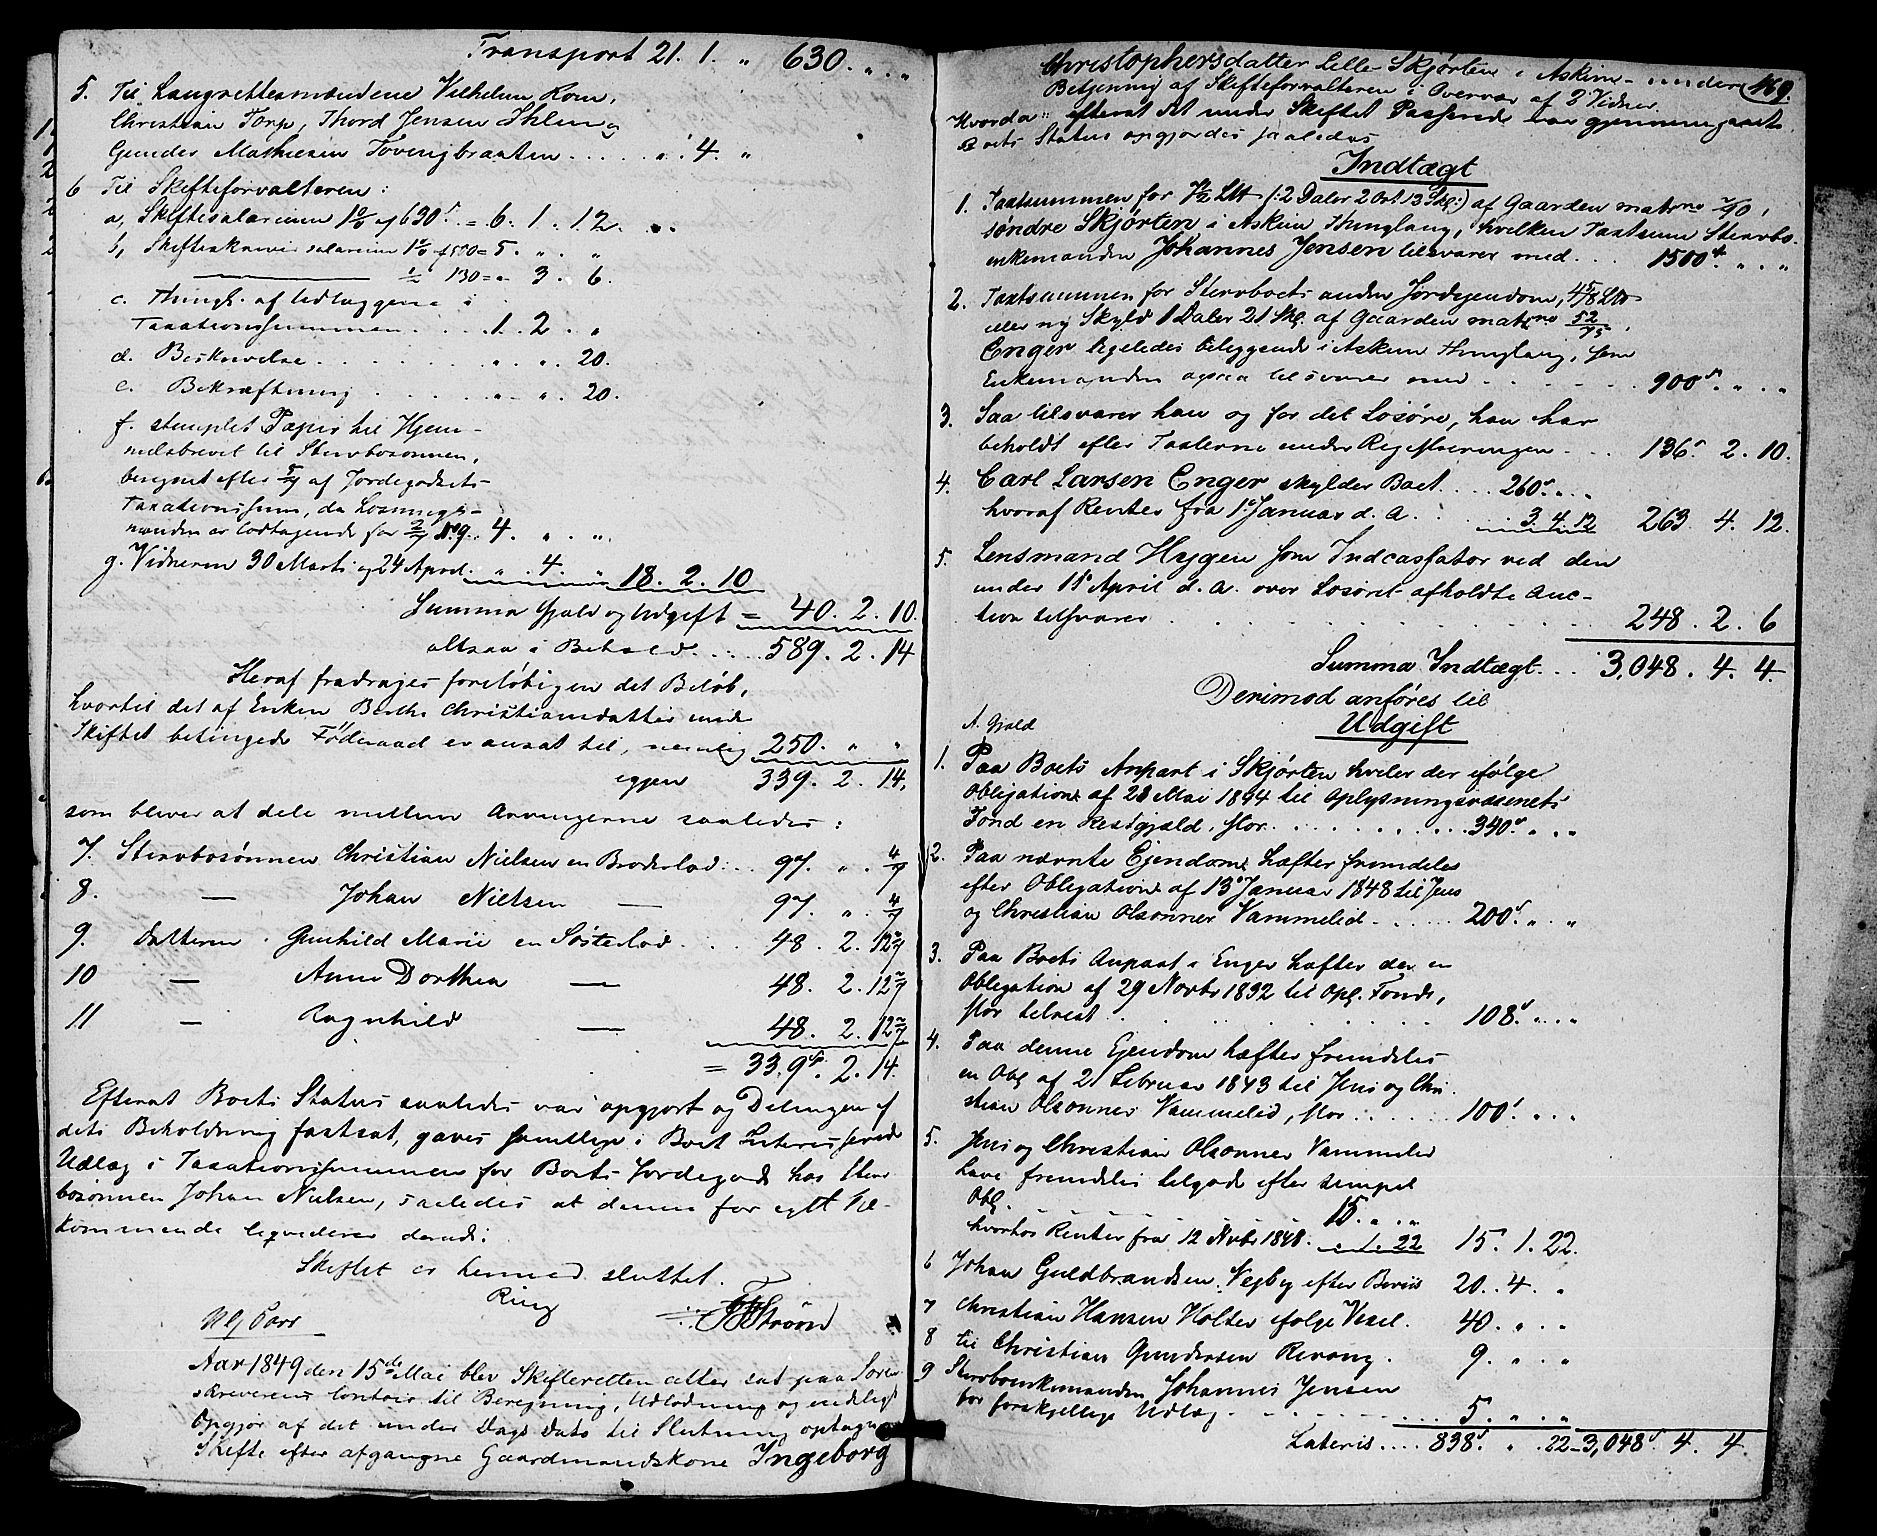 Transport 21. 1. „ 630. „ „
5. Til Laugrettesmændene Vilhelm Kom,
Christian Torp, Thord Jensen Ihlen og
Gunder Mathiesen Toverigbraaten . . . . . „ 4. „
6 Til Skifteforvalteren:
a, Skiftesalarium 1% af 630 = 6. 1. 12.
b, Skifteskriversalarium 1% af 500 = 5. „ . „
1/2 130 = „ 3. 6.
c. Thingl. af Udlæggene i
Taxationssummen . . . . 1. 2. „
d. Beskrivelse . . . . . „ „ 20.
e. Bekræftning . . . . . „ „ 20.
f. stemplet Papir til Hjem-
melsbrevet til Stervbosønnen,
beregnet efter 5/7 af Jordegodsets
Taxationssum, da Løsnings-
manden er lodtagende for 2/7 4. „ „
g. Vidneren 30 Marts og 24 April „ 4. „ 18. 2. 10
Summa Gjæld og Udgift = 40. 2. 10.
altsaa i Behold . . . 589. 2. 14
Heraf fradrages foreløbigen det Beløb,
hvortil det af Enken Berthe Christiansdatter under
Skiftet betingede Føderaad er ansat til, nemlig 250. „ „
igjen 339. 2. 14.
som bliver at dele mellem Arvingerne saaledes:
7. Stervbosønnen Christian Nielsen en Broderlod . . 97. „ . 4/7
8. — Johan Nielsen — 97. „ . 4/7
9. Datteren Gunhild Marie en Søsterlod . . . 48. 2. 12 2/7
10 — Anne Dorthea — 48. 2. 12 2/7
11 — Ragnhild — 48. 2. 12 2/7
= 339. 2. 14.
Efterat Boets Status saaledes var opgjort og Delingen af
dets Beholdning fastsat, gaves samtlige i Boet Interesserede
Udlæg i Taxationssummen for Boets Jordegods hos Sterv-
bosønnen Johan Nielsen, saaledes at denne for et Ved-
kommende liqviderer derud:
Skiftet er hermed sluttet.
Ring
Strøm
Aar 1849 den 15de Mai blev Skifteretten atter sat paa Soren-
skriverens Contoir til Beregning, Udlodning og endligt
Opgjør af det under Dags Dato til Slutning optagne
Skifte efter afgangne Gaardmandskone Ingeborg
Christophersdatter Lille Skjørten i Askim — under 469.
Betjening af Skifteforvalteren i Overvær af 2 Vidner.
Hvorda: efterat det under Skiftet Passerede var gjennemgaaet
Boets Status opgjordes saaledes
Indtægt
1. Taxtsummen for 7 1/2 L℔ (: 2 Daler 2 Ort 13 Skl :) af Gaarden matr no 70,
søndre Skjørten i Askim Thinglaug, hvilken Taxtsum Stervbo-
enkemanden Johannes Jensen tilsvarer med . . . 1500. „ „
2. Taxtsummen for Stervboets anden Jordejendom, 4 5/8 L℔
eller ny Skyld 1 Daler 21 Skl. af Gaarden matr no 52/75,
Enger ligeledes beliggende i Askim Thinglaug, som
Enkemanden ogsaa tilsvarer med . . . . 900. „ „
3. Saa tilsvarer han og for det Løsøre, han har
beholdt efter Taxterne under Registreringen . . . 136. 2. 10.
4. Carl Larsen Enger skylder Boet . . . 260. „ „
hvoraf Renter fra 1 Januar d. A. . . 3. 4. 12 263. 4. 12.
5. Lensmand Hygen som Indcassator ved den
under 11 April d. A. over Løsøret afholdte Auc-
tion tilsvarer . . . . . 248. 2. 6
Summa Indtægt . . . 3,048. 4. 4.
Derimod anføres til
Udgift
A. Gjæld
1. Paa Boets Anpart i Skjørten hviler der ifølge
Obligation af 28 Mai 1844 til Oplysningsvæsenets
Fond en Restgjæld, stor . . . . . . 340. „ „
2. Paa nævnte Ejendom hæfter fremdeles
efter Obligation af 13 Januar 1848 til Jens
og Christian Olsønner Vammelid . . . . 200. „ „
3. Paa Boets Anpart i Enger hæfter der en
Obligation af 29 Novbr 1832 til Opl. Fonds,
stor tilrest . . . . . . 108. „ „
4. Paa denne Ejendom hæfter fremdeles
en Obl af 21 Februar 1843 til Jens og Chri-
stian Olsønner Vammelid, stor . . . . . 100. „ „
5. Jens og Christian Olsønner Vammelid
have fremdeles tilgode efter simpel
Obl. 15. „ „
hvorhos Renter fra 12 Novbr 1848. . „ 1. 22 15. 1. 22.
6 Johan Guldbrandsen Vejby efter Beviis 20. 4. „
7 Christian Hansen Holter ifølge Vexel. 40. „ „
8 til Christian Gundersen Revaug . 9. „ „
9 Stervboenkemanden Johannes Jensen
for forskjellige Udlæg . . . . . 5. „ „
Lateris . . . . 838. „ . 22 – 3,048. 4. 4.